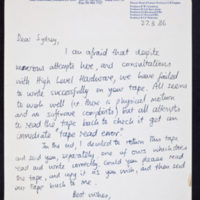 27.3.86
Dear Sydney,
I am afraid that despite
numerous attempts here, and consultations
with High Level Hardware, we have failed
to write successfully on your tape. All seems
to work well (ie there is physical motion
and no software complaints) but all attempts
to read the tape back to check it get an
immediate "tape read error".
In the end, I decided to return this tape
and send you, separately one of ours which does
read and write correctly. Could you please read
our tape, and copy it as you wish, and then send
our tape back to me.
Best wishes,